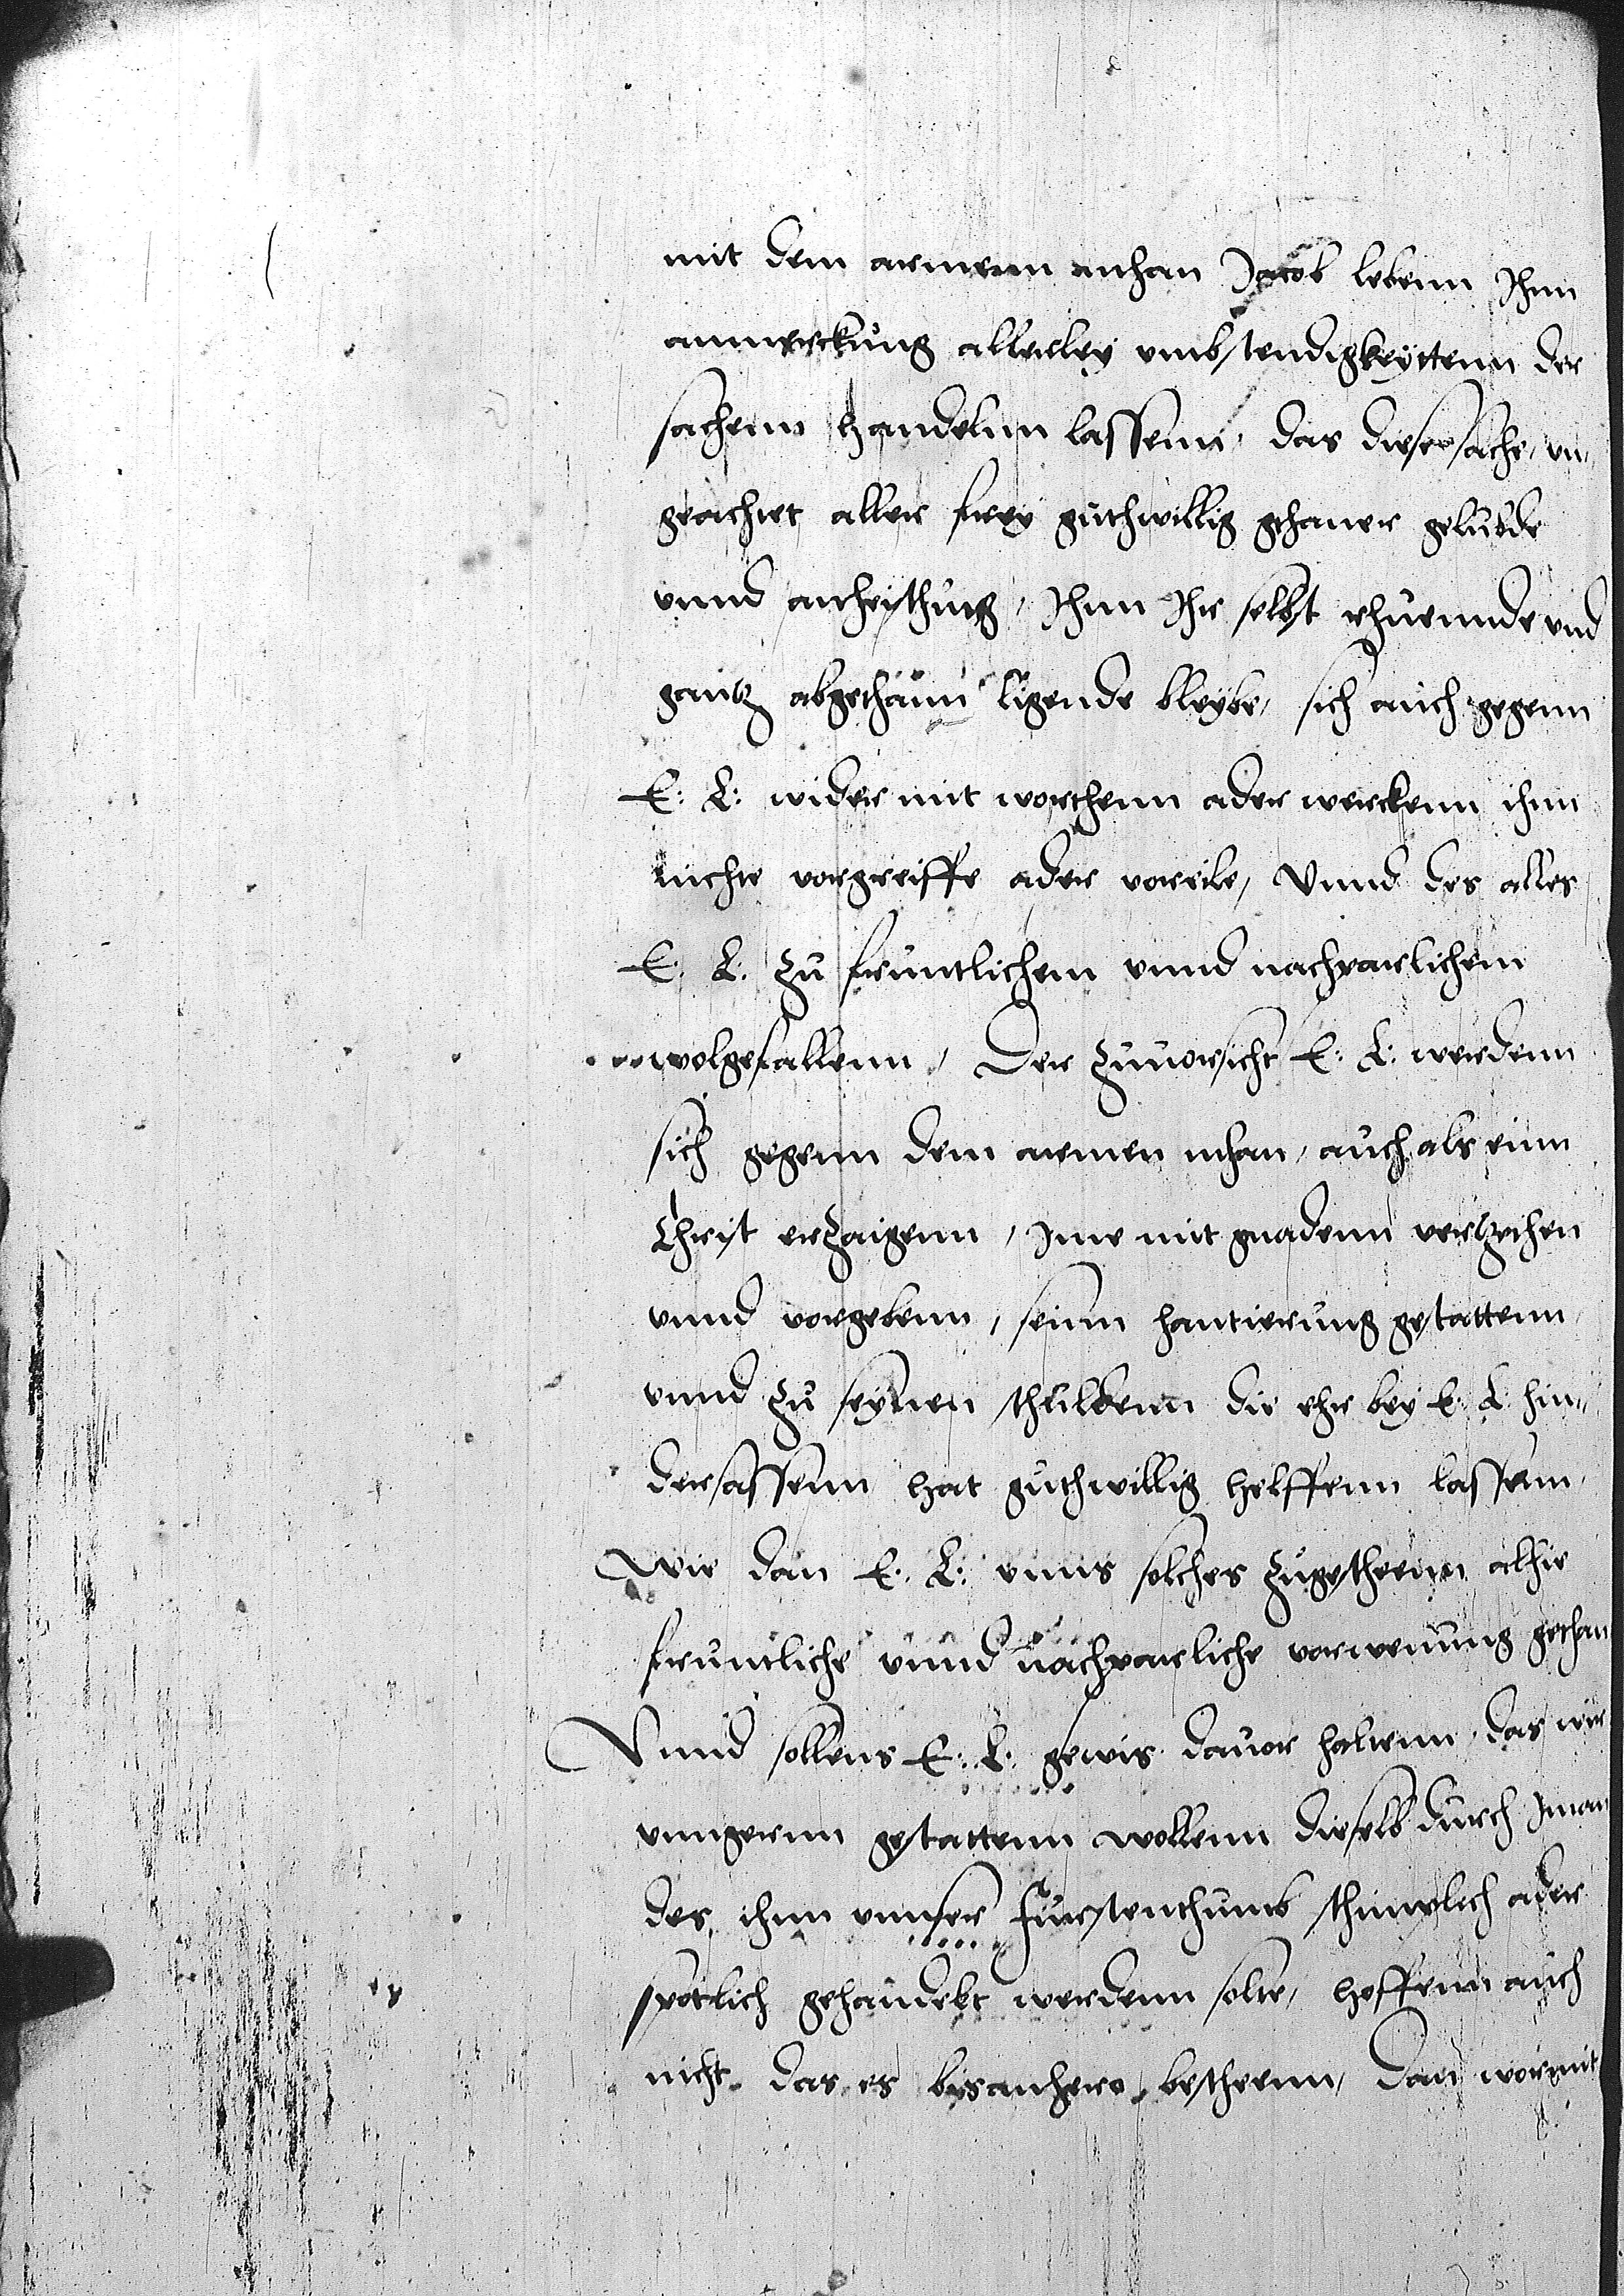 mit dem armenn mhan Jacob lebenn Ihnn
anmerckung allerley umbstendigkeyttenn der
sachenn handelnn lassenn, das diese sache, un¬
geachtet aller frey guthwillig gethaner gelubde
vnnd anheischung, Ihnn Ihr selbst rhuennde vnd
gantz abgethann ligende bleybe, sich auch gegenn
E: L: wider mit worthenn ader werckenn ihnn
nichte vorgreiffe ader voreile, Vnnd des alles
E: L: zu fruntlichem vnnd nachparlichem
wolgefallenn, Der zuuorsicht E: L: werdenn
sich gegenn dem armen mhan, auch als einn
Christ erzaigenn, Ime mit gnadenn verzeihen
vnnd vorgebenn, seinn hantierung gestattenn,
vnnd zu seynen schuldenn die ehr bey E: L: hin¬
dersassenn hat guthwillig helffenn lassenn,
Wie dan E: L: vnns solches zugescheenn alhie
fruntliche vnnd nachparliche vorwenung gethan
Vnnd sollens E: L: gewis dauor haltenn, das wir
vnngernn gestattenn wollenn dieselb durch Iman
des, ihnn vnnser furstenthumb schimplich ader
spotlich gehandelt werdenn solte, hoffenn auch
nicht, das es bisanhero bescheenn, Dan wormit